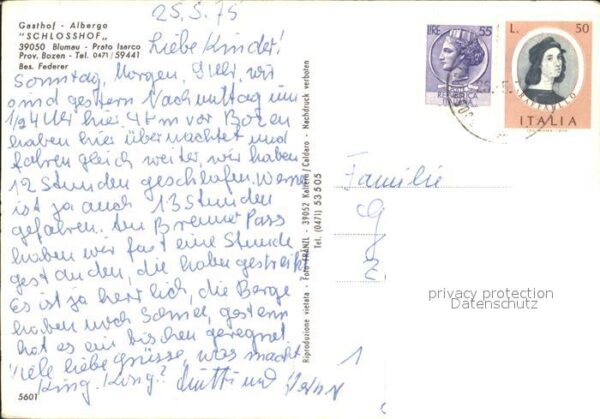 25.5.75
Gasthof - Albergo
"SCHLOSSHOF"
39050 Blumau - Prato Isarco
Prov. Bozen - Tel. 0471/59441
Bes. Federer
Liebe Kinder!
Sonntag, Morgen, wir
sind gestern Nachmittag um
1/2 4 Uhr hier 4 km vor Bozen
haben hier übernachtet und
fahren gleich weiter, wir haben
12 Stunden geschlafen. Werner
ist ja auch 13 Stunden
gefahren. Am Brenner Pass
haben wir fast eine Stunde
gestanden, die haben gestreikt
Es ist ja herrlich, die Berge
haben noch Schnee, gestern
hat es ein bischen geregnet
Viele liebe Grüsse, was macht
King-Kong? Mutti und
5601
Riproduzione vietata - Foto FRÄNZL - 39052 Kaltern/Caldaro - Nachdruck verboten
Tel. (0471) 53505
LIRE 55
L. 50
RAFFAELLO
ITALIA
Familie
privacy protection
Datenschutz
1